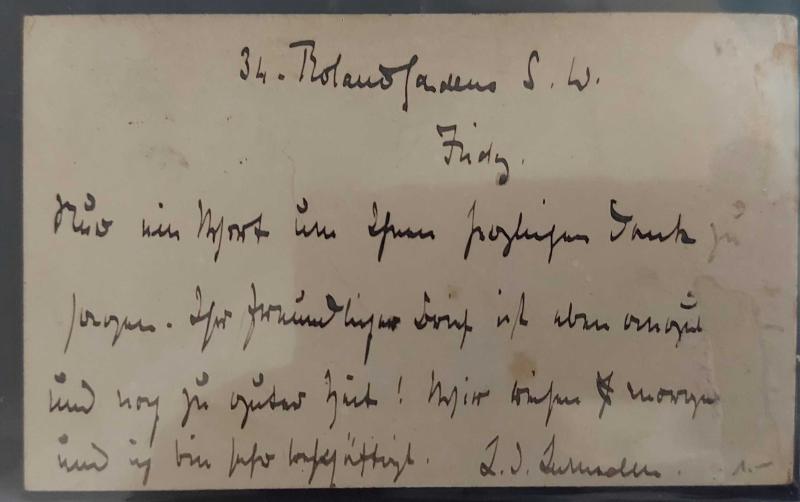 34. Roland Gardens S. W.
Friday.
Nur ein Wort um Ihnen herzlichen Dank zu
sagen. Ihr freundlicher Brief ist eben
und noch zu guter Zeit! Wir reisen morgen
und ich bin sehr beschäftigt.